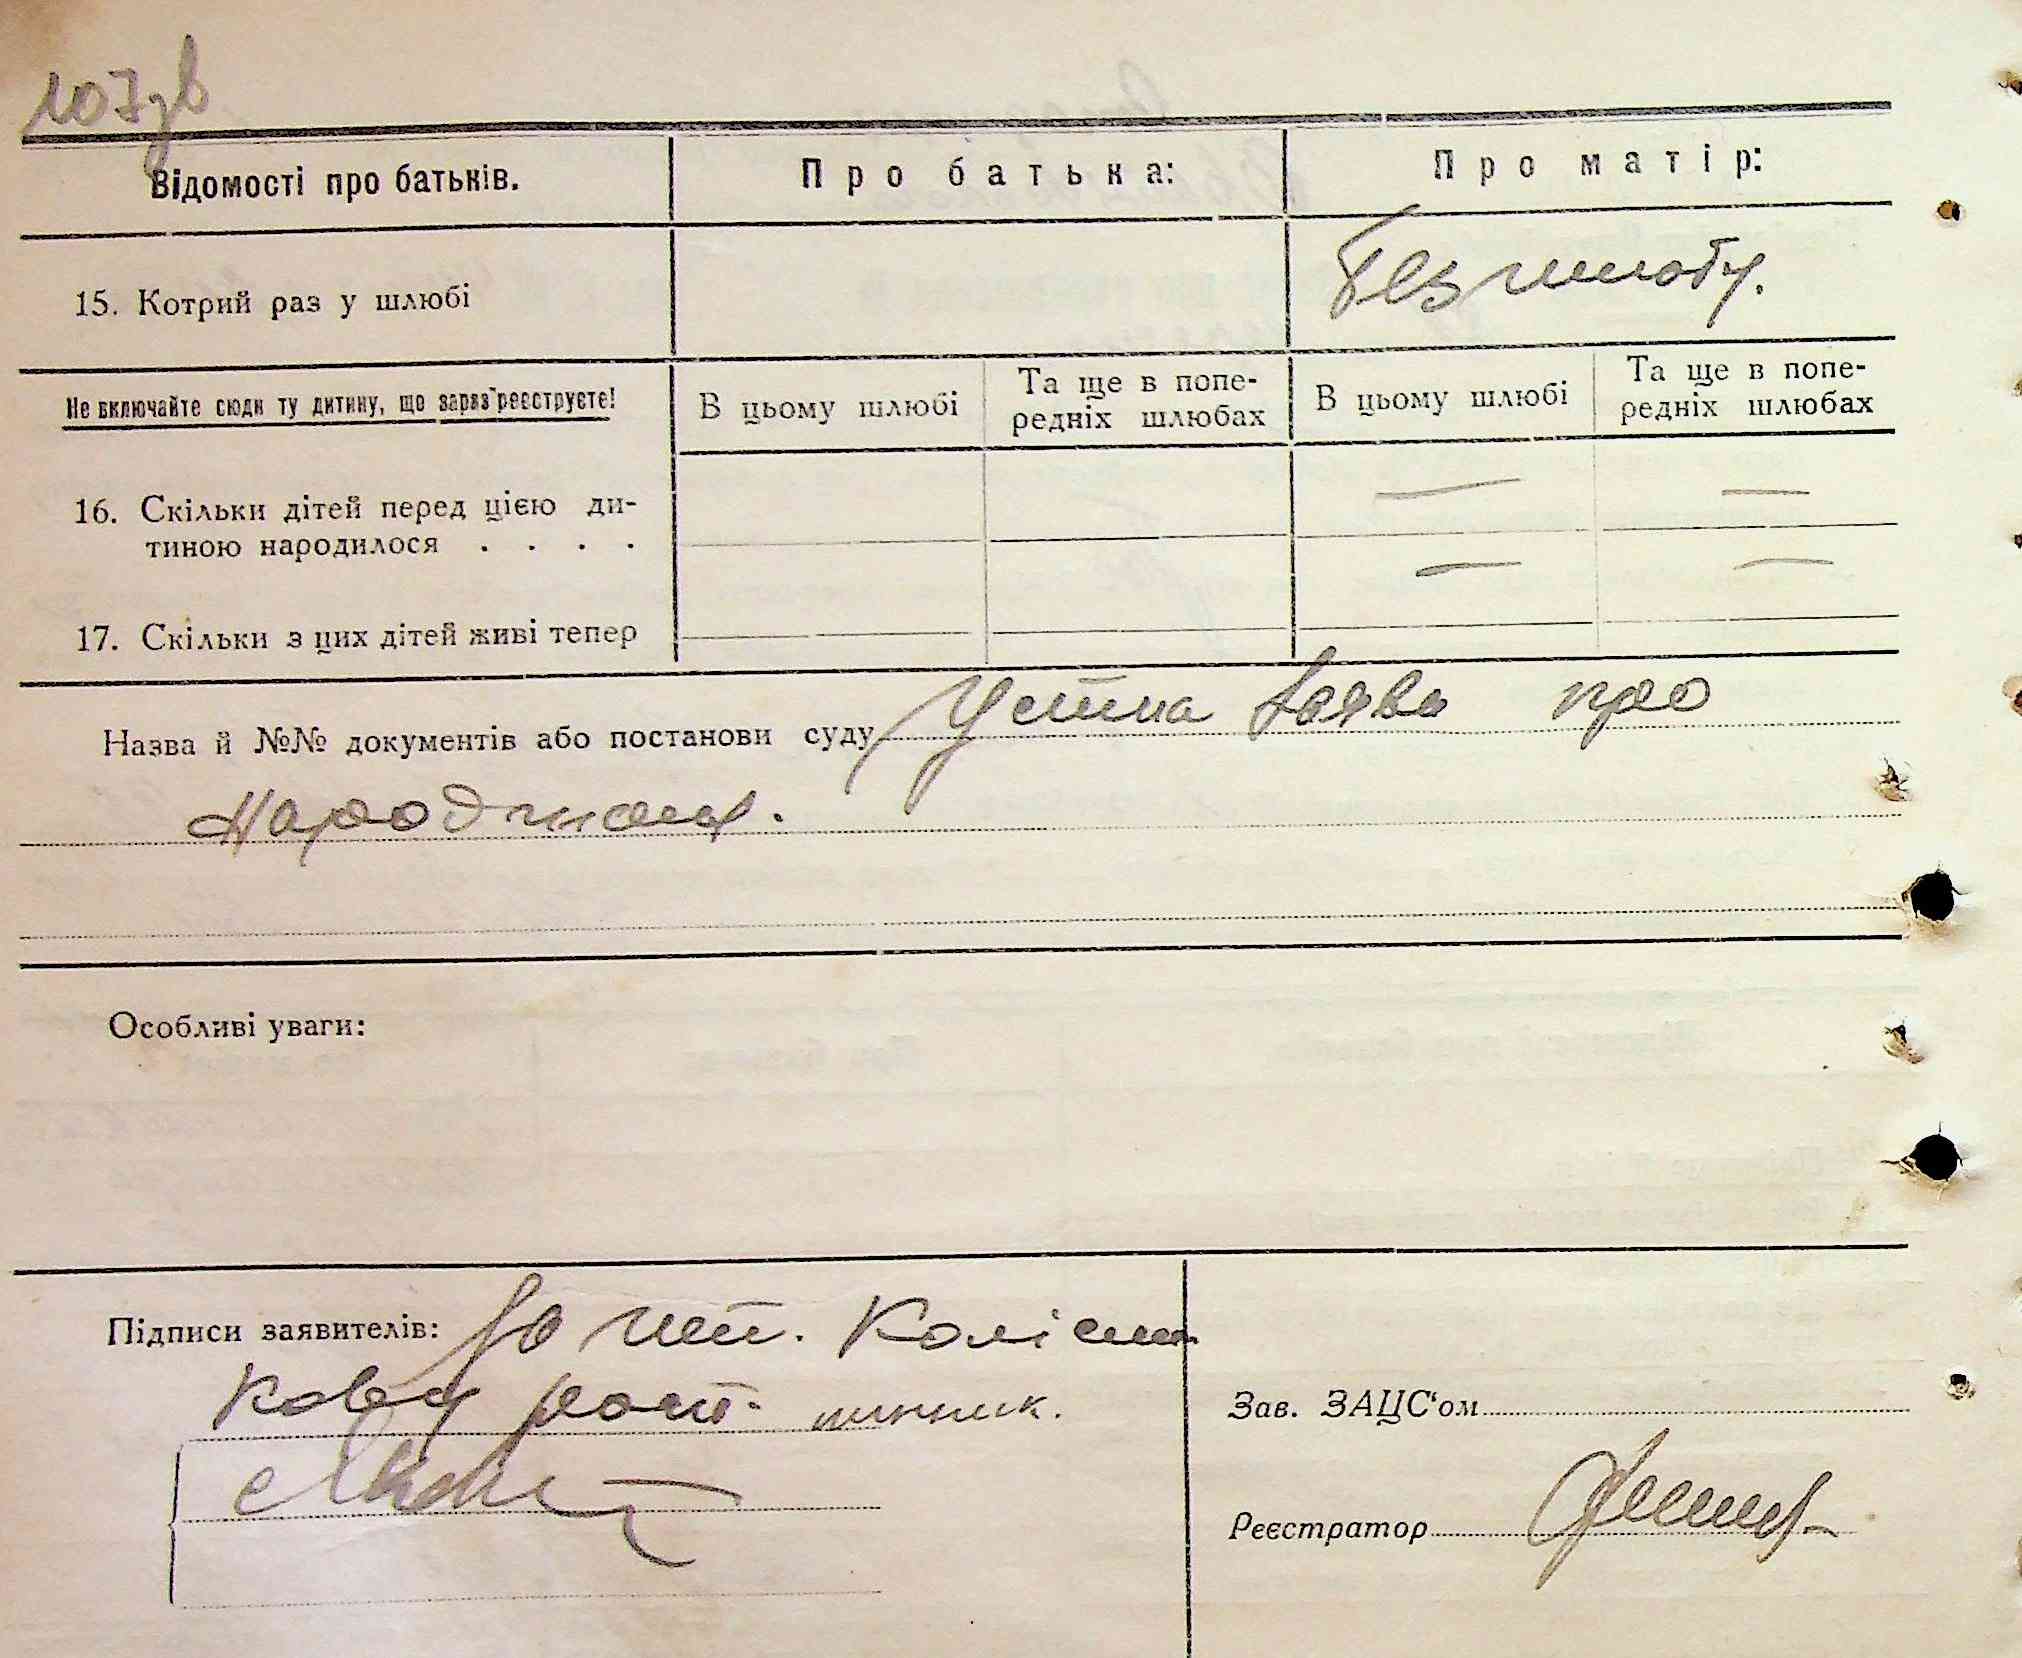 107зв
Відомості про батьків.
Про батька:
Про матір:
15. Котрий раз у шлюбі
Без шлюбу.
Не включайте сюди ту дитину, що зараз реєструєте!
В цьому шлюбі
Та ще в попе-
редніх шлюбах
В цьому шлюбі
Та ще в попе-
редніх шлюбах
16. Скільки дітей перед цією ди-
тиною народилося . . . .
— —
— —
17. Скільки з цих дітей живі тепер
Назва й №№ документів або постанови суду Устна заява про
народження.
Особливі уваги:
Підписи заявителів: За неп. Колісни
кову розп.
Зав. ЗАЦС'ом
Реєстратор